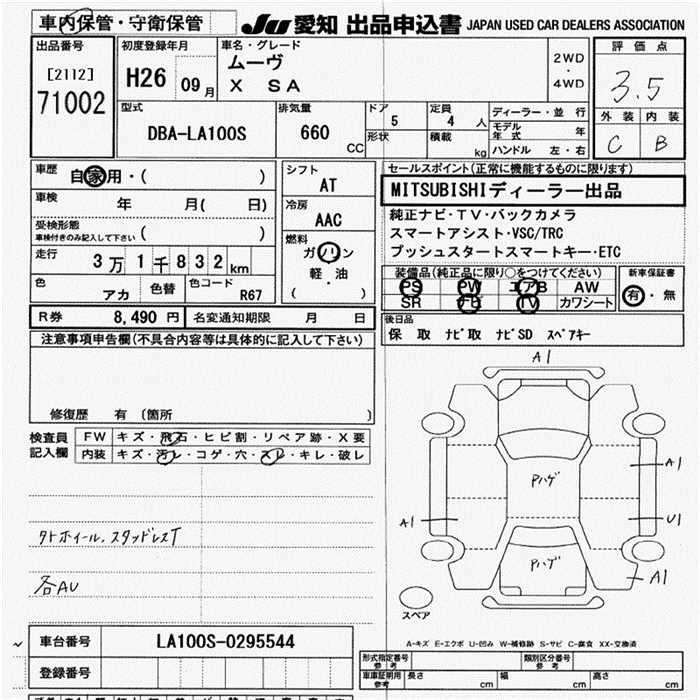 車内保管・守衛保管
JU 愛知 出品申込書 JAPAN USED CAR DEALERS ASSOCIATION
出品番号
[2112]
71002
初度登録年月
H26 09月
車名・グレード
ムーヴ
X SA
2WD
・
4WD
評価点
3.5
外装 内装
C B
型式
DBA-LA100S
排気量
660 CC
ドア
5
形状
定員
4 人
積載
kg
ディーラー・並行
モデル年式 年
ハンドル 左・右
車歴
自家用・( )
車検
年 月( 日)
受検形態
車検付きのみ記入して下さい ( )
走行
3万1千832km
色
アカ
色替
色コード
R67
シフト
AT
冷房
AAC
燃料
ガソリン
軽・油
( )
セールスポイント(正常に機能するものに限ります)
MITSUBISHIディーラー出品
純正ナビ・TV・バックカメラ
スマートアシスト・VSC/TRC
プッシュスタートスマートキー・ETC
装備品(純正品に限り○をつけてください)
PS PW エアB AW
SR ナビ TV カワシート
新車保証書
有・無
R券 8,490円 名変通知期限 月 日
後日品
保 取 ナビ取 ナビSD スペアキー
注意事項申告欄(不具合内容等は具体的に記入して下さい)
修復歴 有 〔箇所 〕
検査員
記入欄
FW キズ・飛石・ヒビ割・リペア跡・X要
内装 キズ・汚レ・コゲ・穴・スレ・キレ・破レ
タトホイール.スタッドレスT
各AU
A1
A1
Pハゲ
A1
U1
Pハゲ
A1
スペア
A-キズ E-エクボ U-凹み W-補修跡 S-サビ C-腐食 XX-交換済
車台番号 LA100S-0295544
登録番号
形式指定番号
参考
類別区分番号
参考
車庫証明用
参考
長さ cm 幅 cm 高さ cm